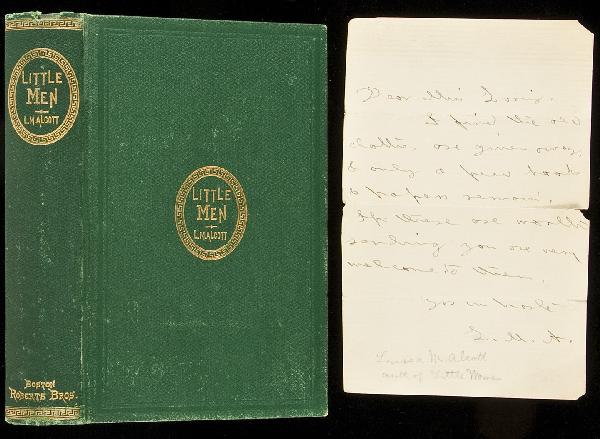 LITTLE
MEN
L.M.ALCOTT
BOSTON
ROBERTS BROS.
LITTLE
MEN
L.M.ALCOTT
Dear Miss
I find the old
clothes are given away,
& only a few books
& papers remain.
If these are worth
sending you are very
welcome to them.
Yrs in haste
L. M. A.
Louisa M. Alcott
auth of Little Women